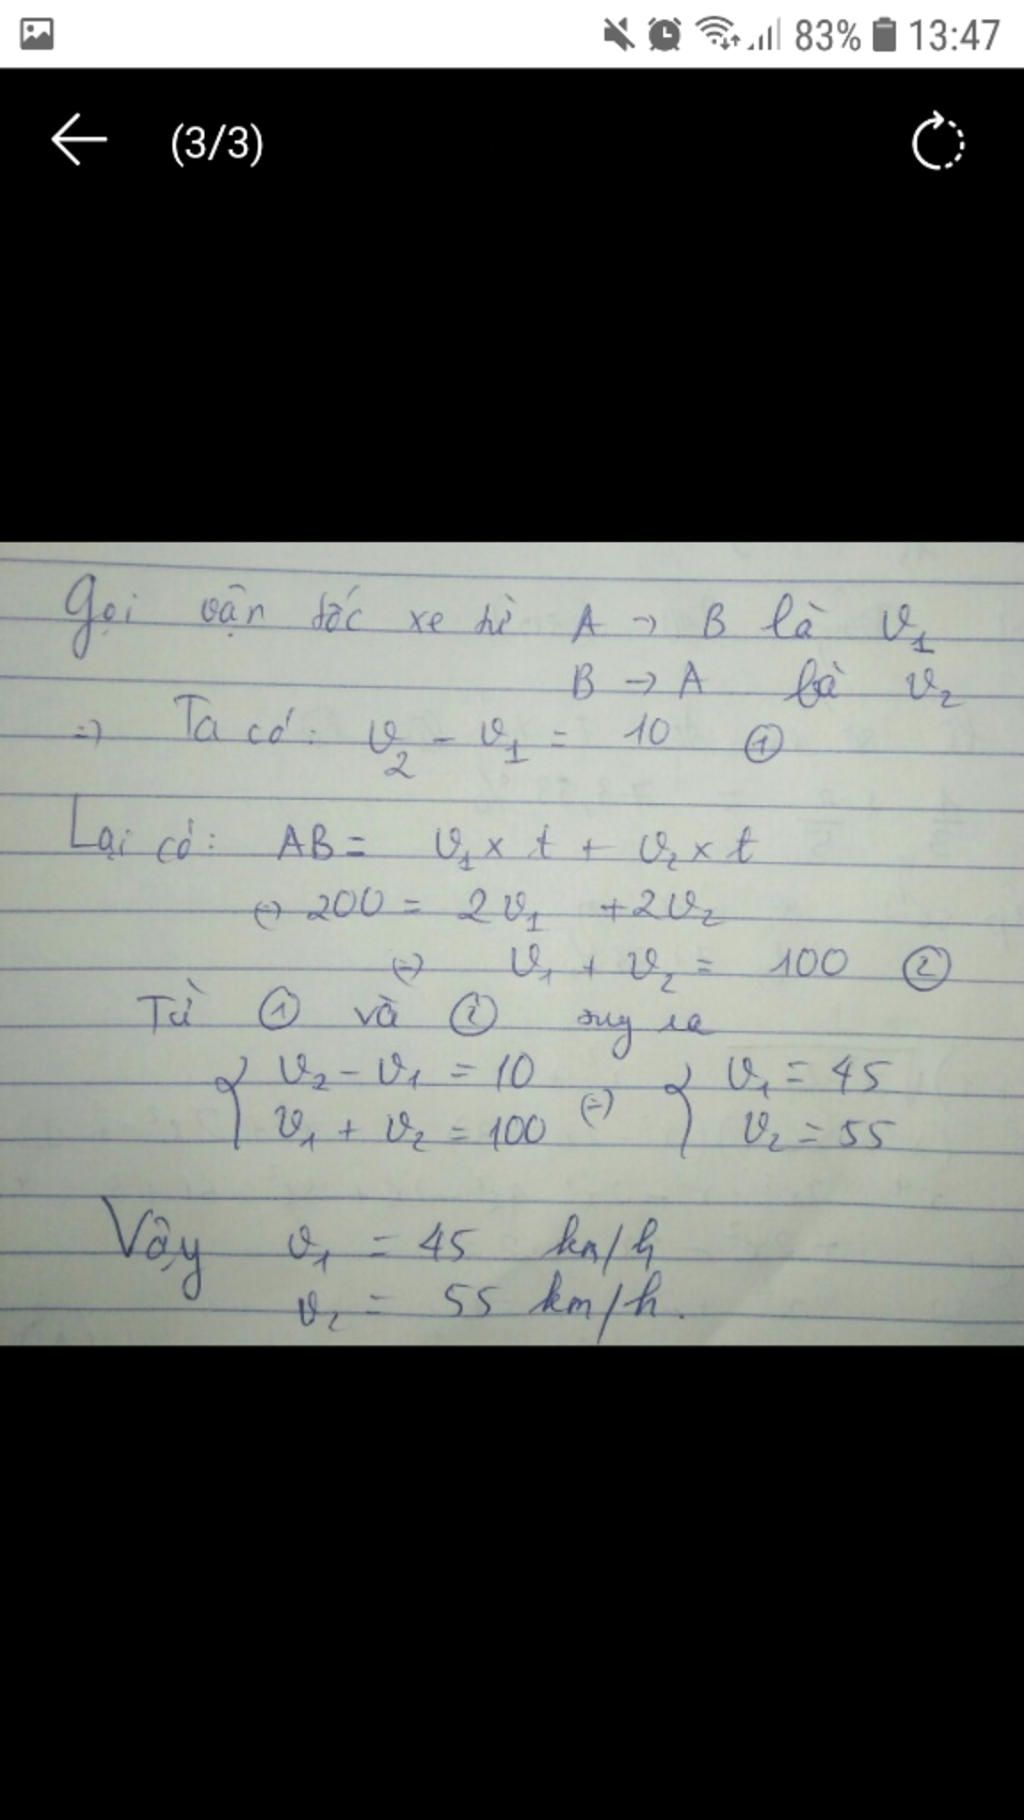 83% 13:47
(3/3)
Gọi vận tốc xe từ A → B là v₁
B → A là v₂
=> Ta có: v₂ - v₁ = 10 ①
Lại có: AB = v₁ x t + v₂ x t
(=) 200 = 2v₁ + 2v₂
(=) v₁ + v₂ = 100 ②
Từ ① và ② suy ra
{ v₂ - v₁ = 10 (=) { v₁ = 45
v₁ + v₂ = 100 v₂ = 55
Vậy v₁ = 45 km/h
v₂ = 55 km/h.